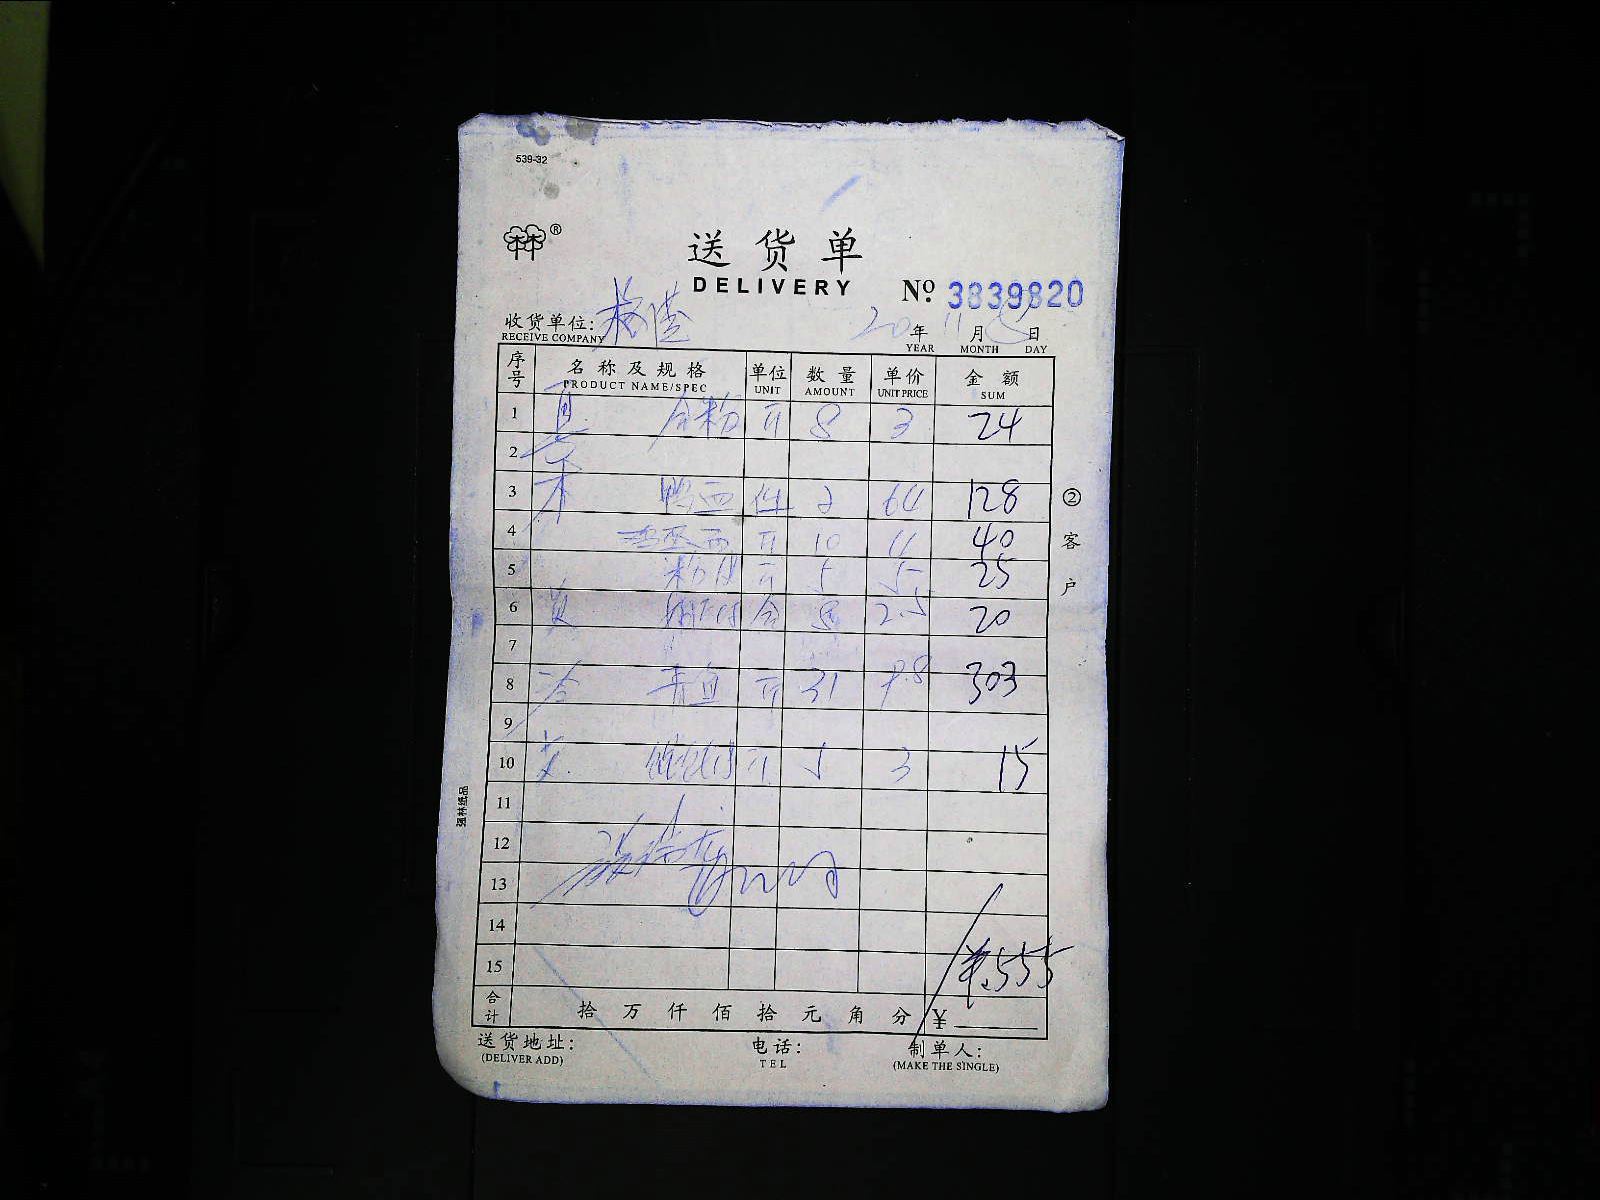 539-32
®
送货单
DELIVERY
Nº 3839820
收货单位:
RECEIVE COMPANY
20 年 11 月 日
YEAR MONTH DAY
序号 名称及规格 单位 数量 单价 金额
PRODUCT NAME/SPEC UNIT AMOUNT UNIT PRICE SUM
1 8 3 24
2
3 鸭血 件 2 64 128
4 斤 10 4 40
5 粉皮 斤 5 5 25
6 8 2.5 20
7
8 斤 31 9.8 303
9
10 斤 5 3 15
11
12
13
14
15
¥555
合计 拾 万 仟 佰 拾 元 角 分 ¥
送货地址: 电话: 制单人:
(DELIVER ADD) TEL (MAKE THE SINGLE)
② 客户
强林纸品